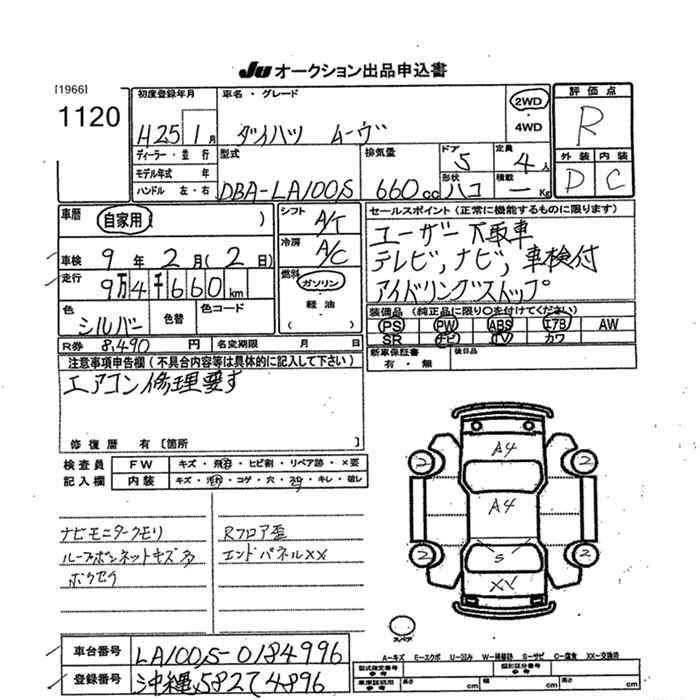 JU オークション出品申込書
[1966]
1120
初度登録年月 車名・グレード 2WD 評価点
H25 1月 ダイハツ ムーヴ 4WD R
ディーラー・並行 型式 排気量 ドア 5 定員 4人 外装 内装
モデル年式 年 形状 積載
ハンドル 左・右 DBA-LA100S 660cc ハコ ー Kg D C
車歴 自家用 ( ) シフト A/T セールスポイント(正常に機能するものに限ります)
車検 9年 2月(2日) 冷房 A/C ユーザー下取車
走行 9万4千660km 燃料 ガソリン テレビ,ナビ,車検付
色 シルバー 色替 色コード 軽油・( ) アイドリングストップ
装備品(純正品に限り○を付けてください)
PS PW ABS エアB AW
R券 8,490円 名変期限 月 日 SR ナビ TV カワ
注意事項申告欄(不具合内容等は具体的に記入して下さい) 新車保証書 後日品
有・無
エアコン修理要す
修復歴 有〔箇所 〕
検査員 FW キズ・飛石・ヒビ割・リペア跡・X要
記入欄 内装 キズ・汚れ・コゲ・穴・スレ・キレ・破レ
A4
2 2
A4
ナビモニタークモリ Rフロア歪
ルーフボンネットキズ多 エンドパネルXX
ボクセラ
2 S 2
XX
スペア
車台番号 LA100S-0184996
A-キズ E-エクボ U-凹み W-補修跡 S-サビ C-腐食 XX-交換済
登録番号 沖縄582て4896
型式指定番号 参考 類別区分番号 参考
車庫証明用 参考 長さ cm 幅 cm 高さ cm